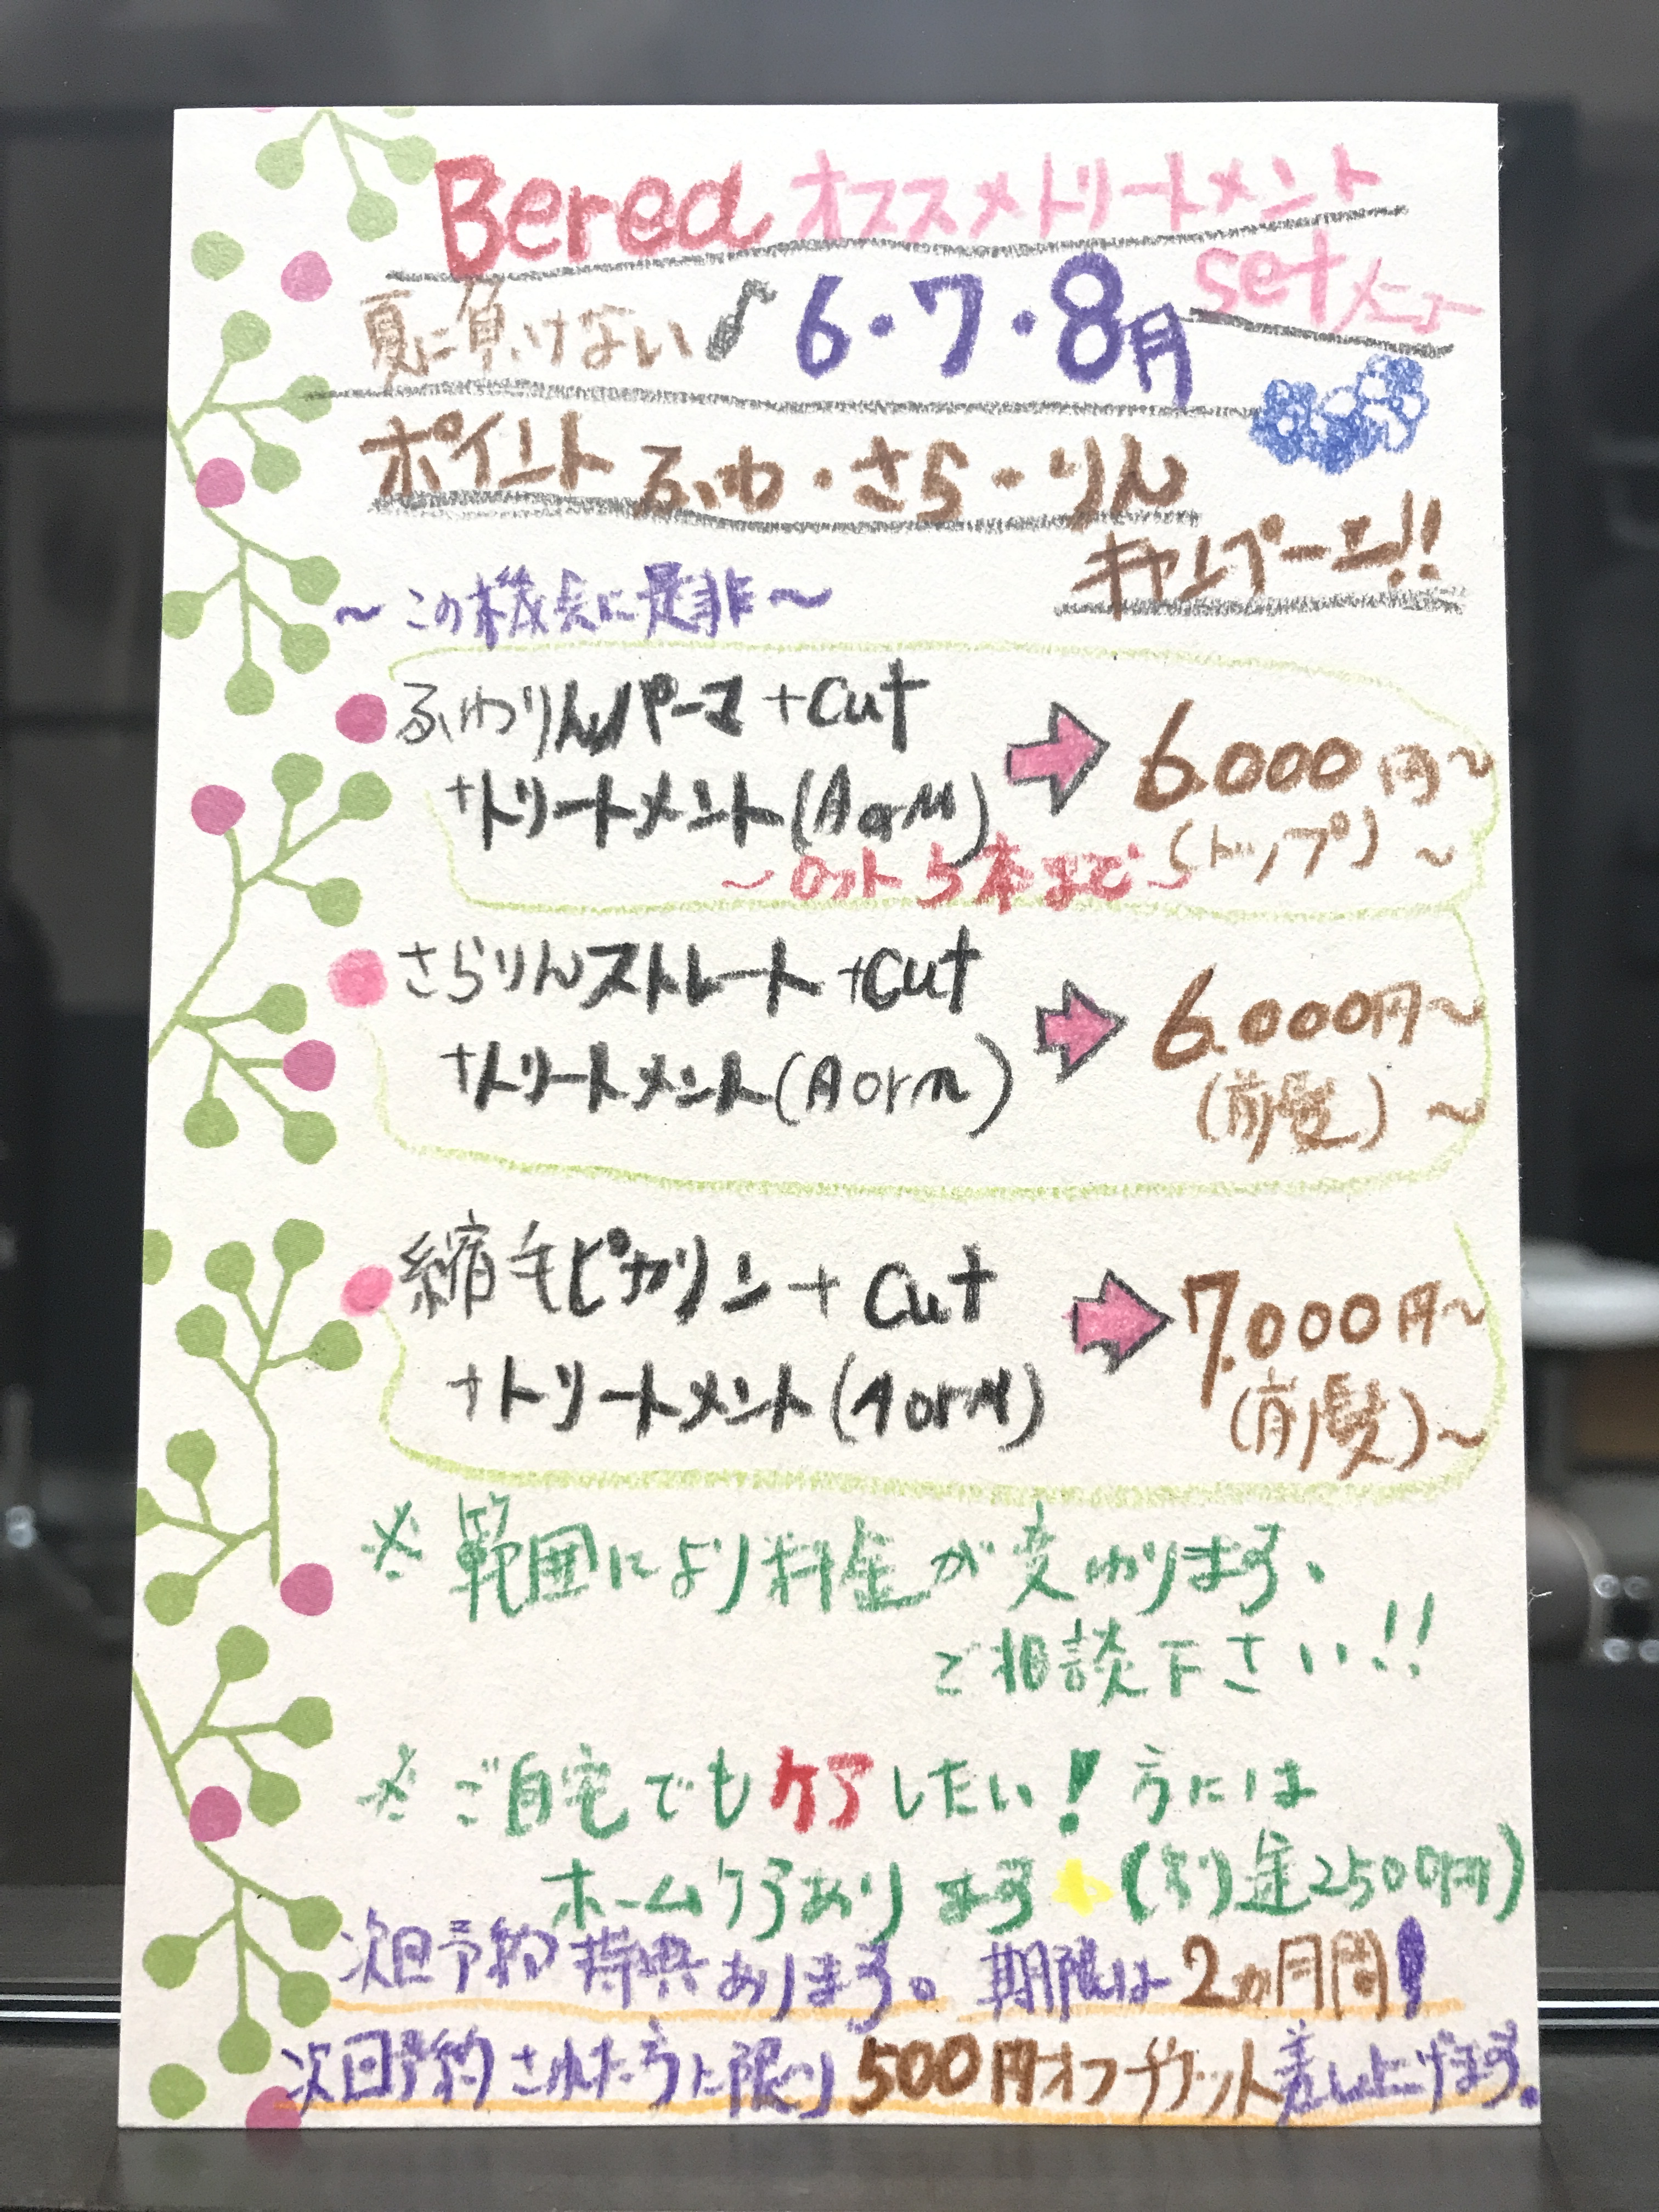 Bered オススメトリートメント
setメニュー
夏に負けない♪ 6・7・8月
ポイント ふわ・さら・りん
キャンペーン!!
〜この機会に是非〜
ふわりんパーマ +Cut
+トリートメント(A or M)
6.000円〜
(トップ)〜
〜ロット5本まで〜
さらりんストレート +Cut
+トリートメント(A or M)
6.000円〜
(前髪)〜
縮毛ピカリン + Cut
+トリートメント(A or M)
7.000円〜
(前髪)〜
※範囲により料金が変わります、
ご相談下さい!!
※ご自宅でもケアしたい!方には
ホームケアあります (別金2500円)
次回予約特典あります。期限は2カ月間!
次回予約された方に限り500円オフチケット差し上げます。